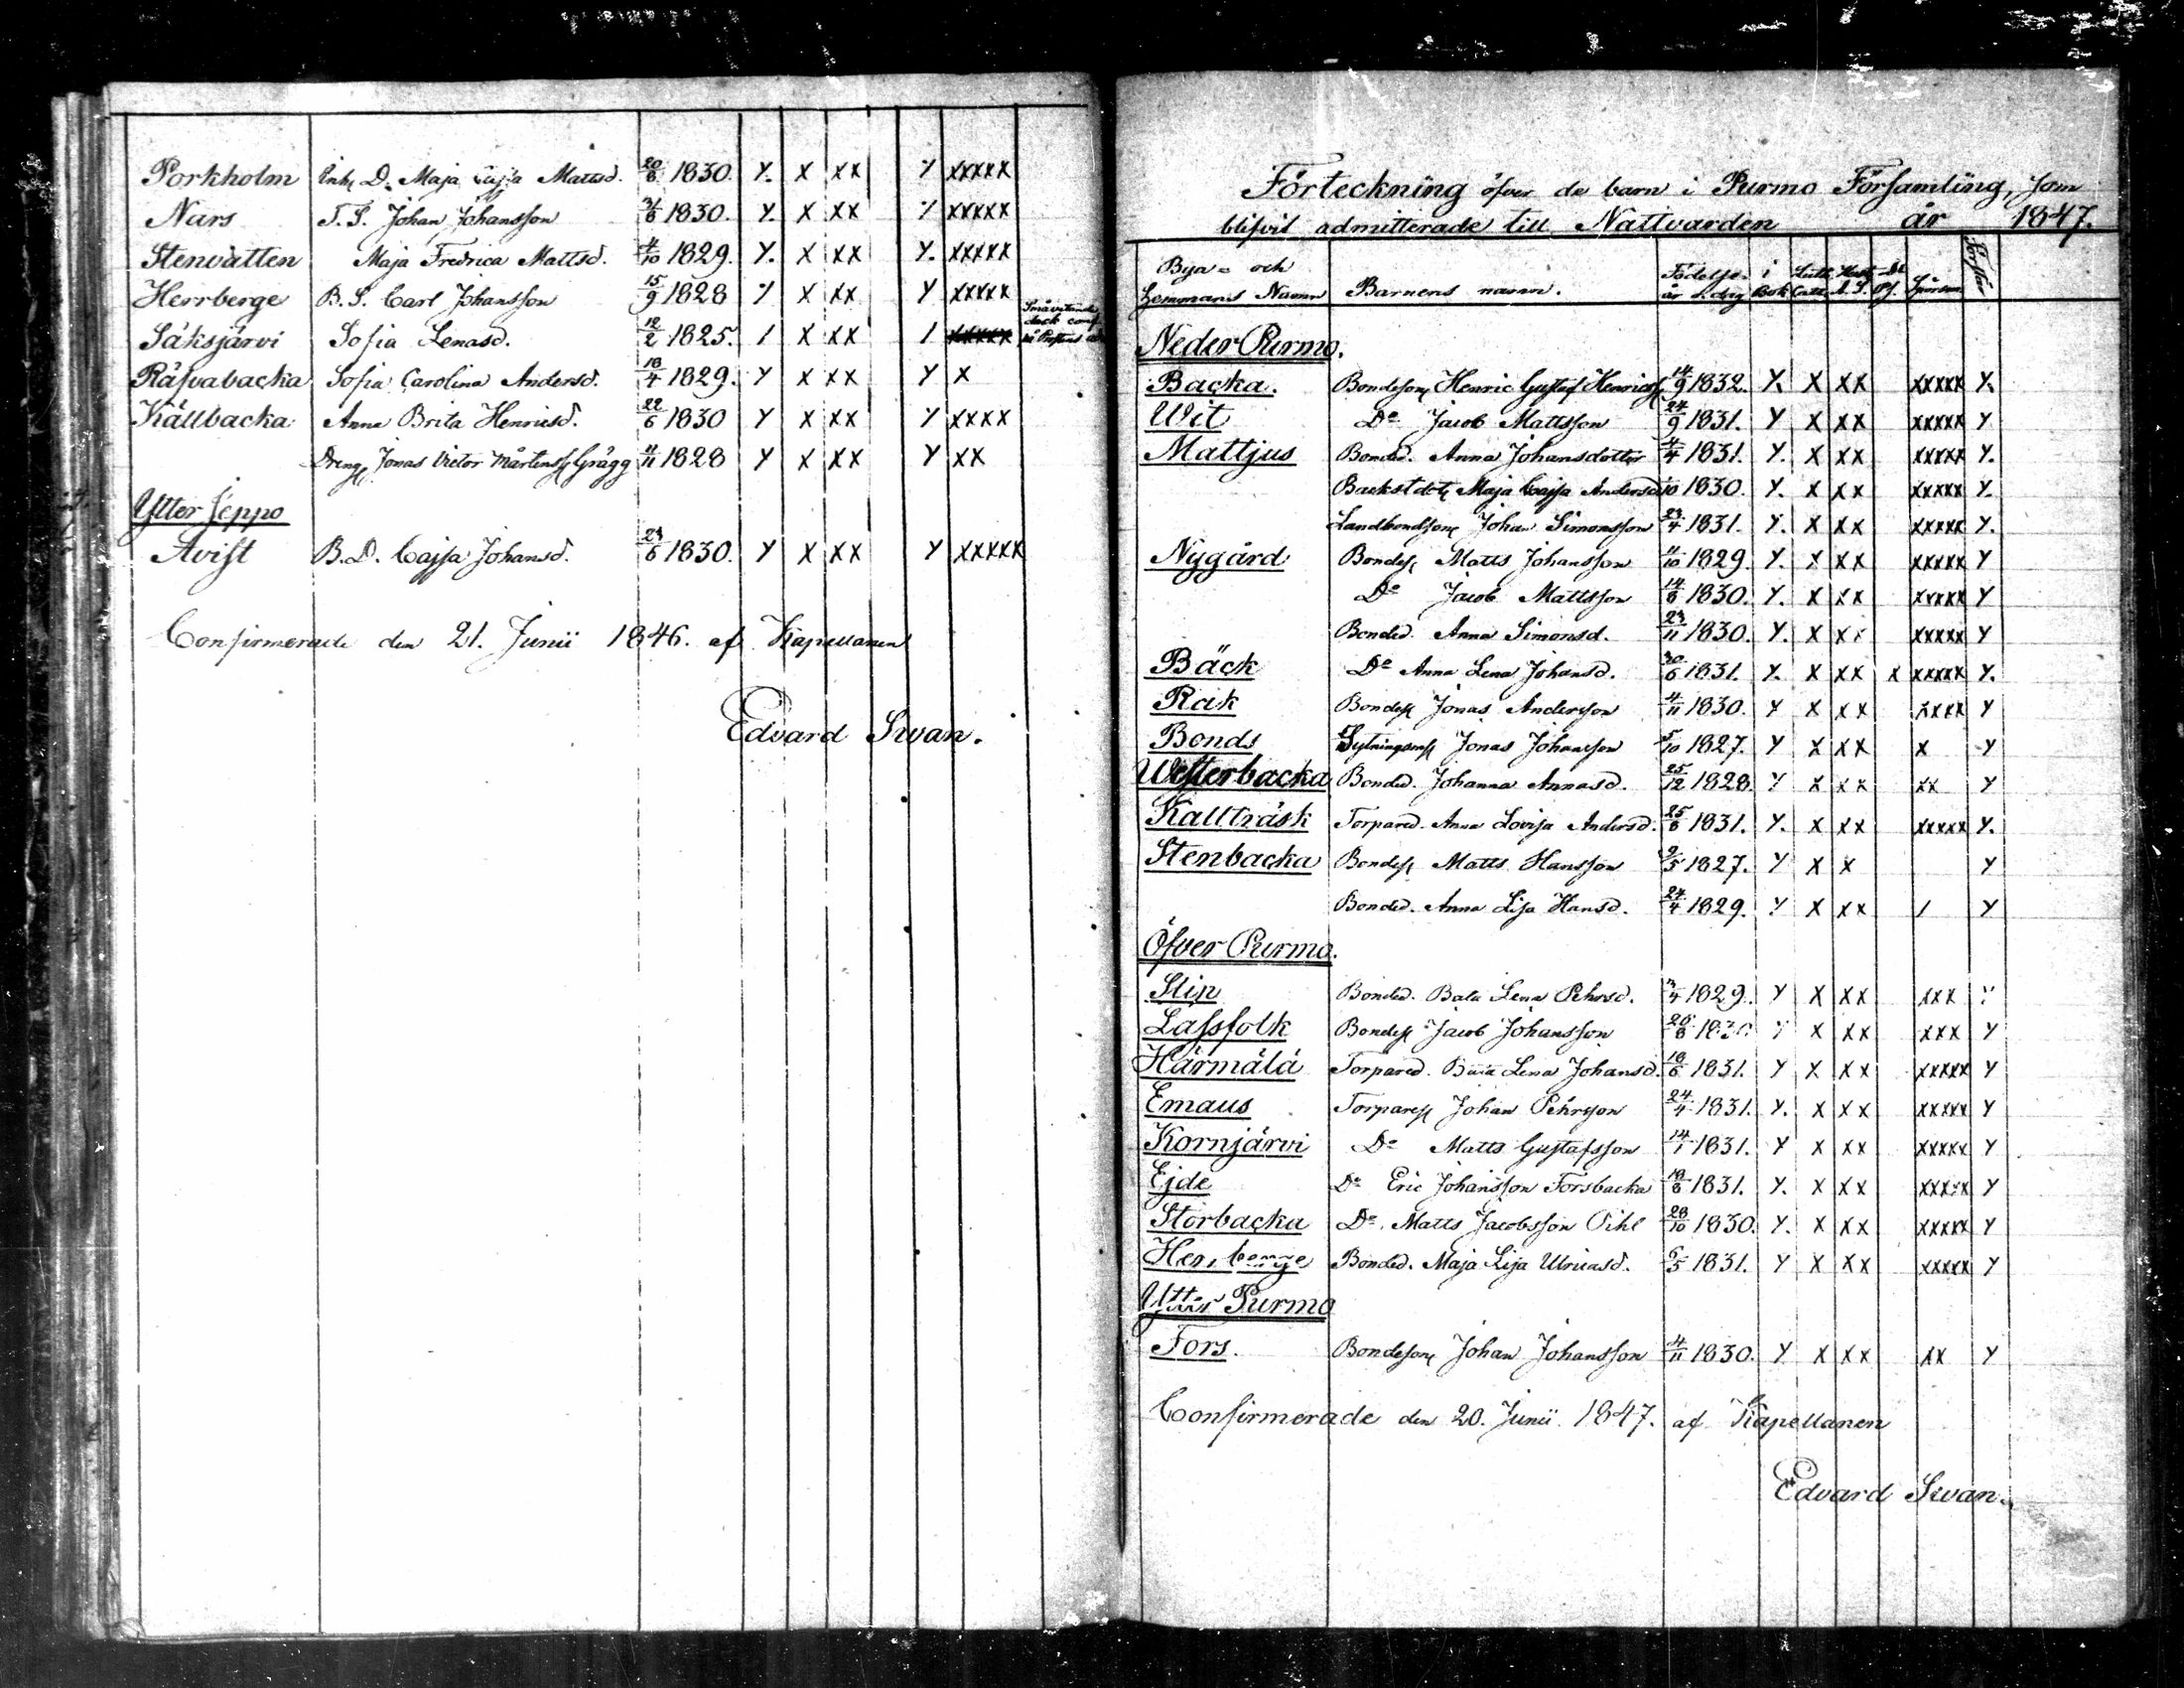 Porkholm Enk. D. Maja Cajsa Mattsd. 20/8 1830. Y. X XX Y XXXXX
Nars T. S. Johan Johansson 31/8 1830. Y. X XX Y XXXXX
Stenvatten Maja Fredrica Mattsd. 4/10 1829. Y. X XX Y. XXXXX
Herrberge B. S. Carl Johansson 15/9 1828 Y X XX Y XXXXX
Säksjärvi Sofia Lenasd. 12/2 1825. / X XX /
Räfvabacka Sofia Carolina Andersd. 18/4 1829. Y X XX Y X
Källbacka Anna Brita Henricsd. 22/6 1830 Y X XX Y XXXX
Dreng Jonas Victor Mårtenss. Grägg 11/11 1828 Y X XX Y XX
Ytter Jeppo
Avist B. D. Cajsa Johansd. 24/6 1830. Y X XX Y XXXXX
Confirmerade den 21. Junii 1846. af Kapellanen
Edvard Svan.
Förteckning öfver de barn i Purmo Församling, som
blifvit admitterade till Nattvarden år 1847.
Bya- och Hemmans Namn Barnens namn. Födelse- år o. dag i Bok Luth. Catk. Hust. S. Spörsm.
Neder Purmo.
Backa. Bondeson Henric Gustaf Henricss. 14/9 1832. Y. X XX XXXXX Y.
Wit Do Jacob Mattsson 24/9 1831. Y X XX XXXXX Y
Mattjus Bonded. Anna Johansdotter 4/4 1831. Y. X XX XXXXX Y.
Backst. dot. Maja Cajsa Andersd. 1830. Y. X XX XXXXX Y.
Landbondeson Johan Simonsson 23/4 1831. Y. X XX XXXXX Y.
Nygård Bondes. Matts Johansson 11/10 1829. Y. X XX XXXXX Y
Do Jacob Mattsson 14/8 1830. Y. X XX XXXXX Y
Bonded. Anna Simonsd. 23/11 1830. Y. X XX XXXXX Y
Bäck Do Anna Lena Johansd. 30/6 1831. Y. X XX X XXXXX Y.
Rak Bondes. Jonas Andersson 4/11 1830. Y X XX XXXX Y
Bonds Sytningsm. Jonas Johansson 5/10 1827. Y X XX X Y
Westerbacka Bonded. Johanna Annasd. 25/12 1828. Y X XX XX Y
Kallträsk Torpared. Anna Lovisa Andersd. 25/8 1831. Y. X XX XXXXX Y.
Stenbacka Bondes. Matts Hansson 9/5 1827. Y X X Y
Bonded. Anna Lisa Hansd. 24/4 1829. Y X XX / Y
Öfver Purmo.
Slip Bonded. Lena Pehrsd. 1829. Y X XX XXX Y
Lassfolk Bondes. Jacob Johansson 26/8 1830 Y X XX XXX Y
Härmälä Torpared. Lena Johansd. 18/6 1831. Y X XX XXXXX Y
Emaus Torpares. Johan Pehrsson 24/4 1831. Y. X XX XXXXX Y
Kornjärvi Do Matts Gustafsson 14/1 1831. Y X XX XXXXX Y
Ejde Do Eric Johansson Forsbacka 18/8 1831. Y. X XX XXXXX Y
Storbacka Do. Matts Jacobsson Pihl 28/10 1830. Y. X XX XXXXX Y
Herrberge Bonded. Maja Lisa Ulricasd. 6/5 1831. Y X XX XXXXX Y
Ytter Purmo
Fors. Bondeson Johan Johansson 4/11 1830. Y X XX XX Y
Confirmerade den 20. Junii 1847. af Kapellanen
Edvard Svan.